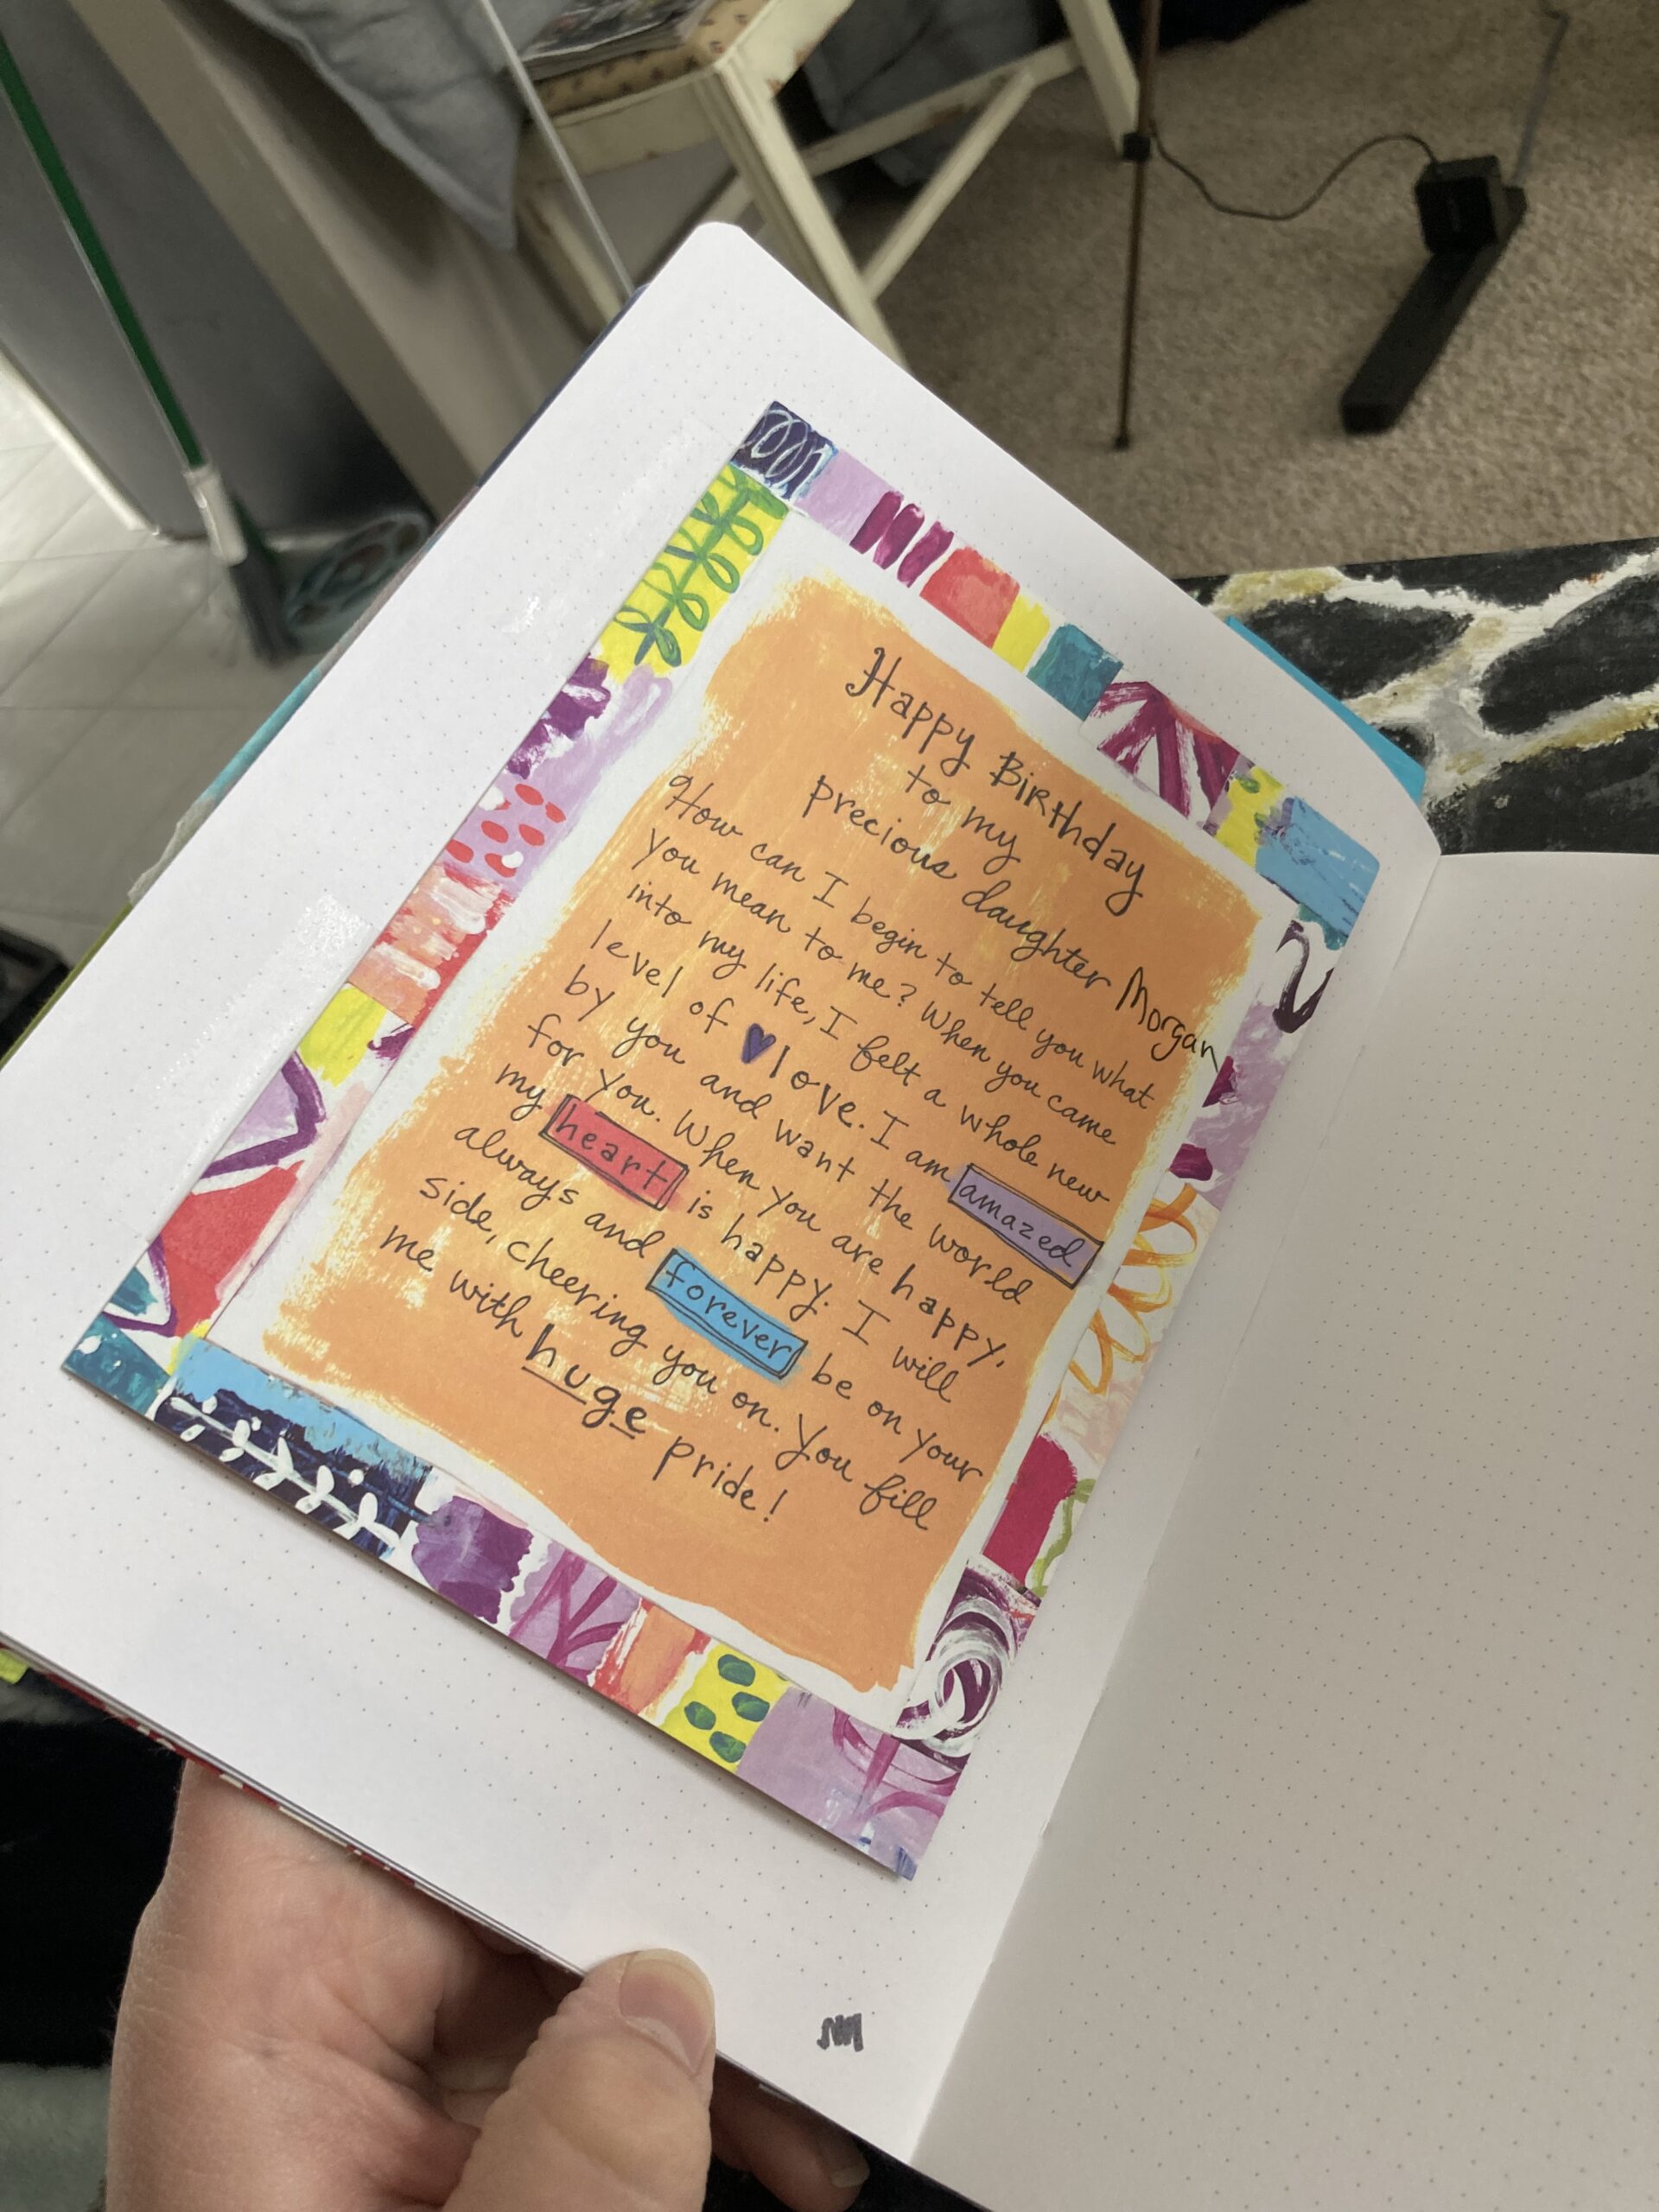 Happy Birthday
to my
precious daughter Morgan
How can I begin to tell you what
you mean to me? When you came
into my life, I felt a whole new
level of ♥ love. I am amazed
by you and want the world
for you. When you are happy,
my heart is happy. I will
always and forever be on your
side, cheering you on. You fill
me with huge pride!